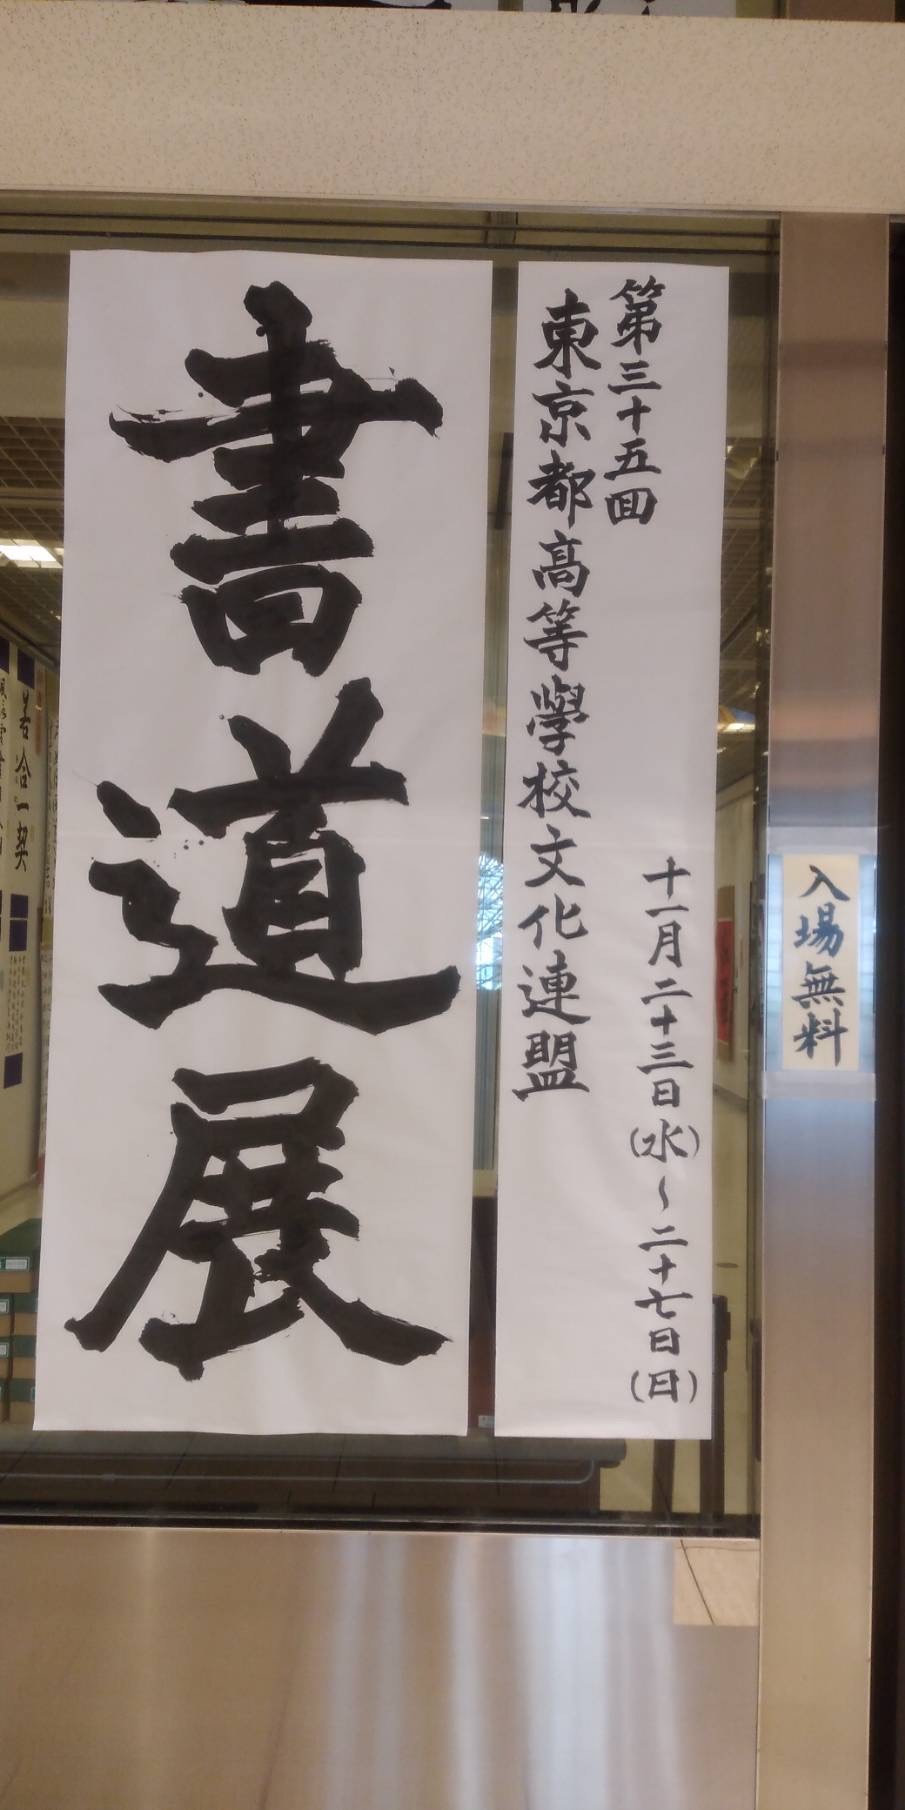 入場無料
第三十五回
十一月二十三日(水)～二十七日(日)
東京都高等學校文化連盟
書道展
若合一契